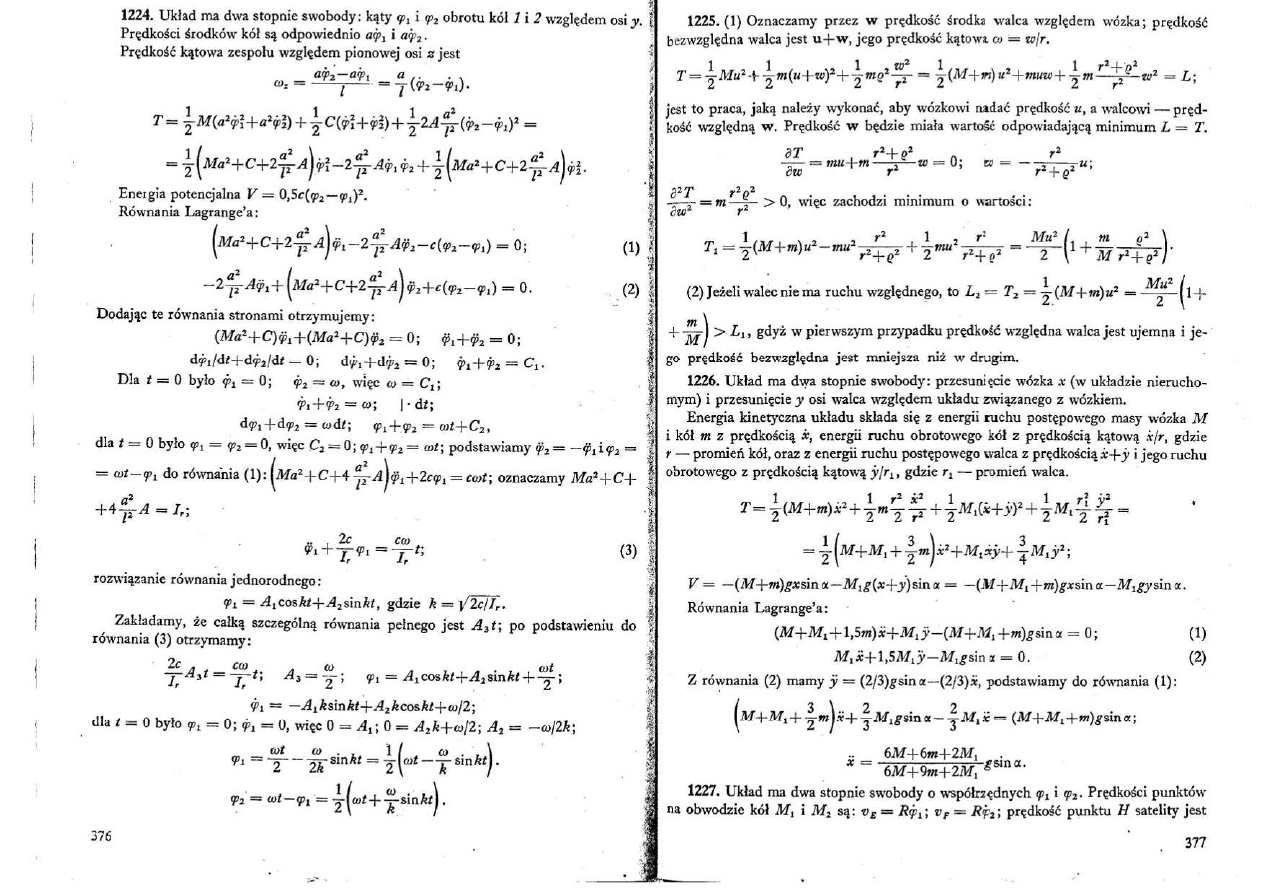 1224. Układ ma dwa stopnie swobody: kąty φ₁ i φ₂ obrotu kół 1 i 2 względem osi y.
Prędkości środków kół są odpowiednio aφ̇₁ i aφ̇₂.
Prędkość kątowa zespołu względem pionowej osi z jest
ω_z = (aφ̇₂−aφ̇₁)/l = a/l (φ̇₂−φ̇₁).
T = 1/2 M(a²φ̇₁²+a²φ̇₂²) + 1/2 C(φ̇₁²+φ̇₂²) + 1/2 2A a²/l² (φ̇₂−φ̇₁)² =
= 1/2 (Ma²+C+2 a²/l² A) φ̇₁² − 2 a²/l² Aφ̇₁φ̇₂ + 1/2 (Ma²+C+2 a²/l² A) φ̇₂².
Energia potencjalna V = 0,5c(φ₂−φ₁)².
Równania Lagrange'a:
(Ma²+C+2 a²/l² A) φ̈₁ − 2 a²/l² Aφ̈₂ − c(φ₂−φ₁) = 0; (1)
−2 a²/l² Aφ̈₁ + (Ma²+C+2 a²/l² A) φ̈₂ + c(φ₂−φ₁) = 0. (2)
Dodając te równania stronami otrzymujemy:
(Ma²+C)φ̈₁+(Ma²+C)φ̈₂ = 0; φ̈₁+φ̈₂ = 0;
dφ̇₁/dt+dφ̇₂/dt = 0; dφ̇₁+dφ̇₂ = 0; φ̇₁+φ̇₂ = C₁.
Dla t = 0 było φ̇₁ = 0; φ̇₂ = ω, więc ω = C₁;
φ̇₁+φ̇₂ = ω; |· dt;
dφ₁+dφ₂ = ωdt; φ₁+φ₂ = ωt+C₂,
dla t = 0 było φ₁ = φ₂ = 0, więc C₂ = 0; φ₁+φ₂ = ωt; podstawiamy φ̈₂ = −φ̈₁ i φ₂ =
= ωt−φ₁ do równania (1): (Ma²+C+4 a²/l² A) φ̈₁+2cφ₁ = cωt; oznaczamy Ma²+C+
+4 a²/l² A = I_r;
φ̈₁ + 2c/I_r φ₁ = cω/I_r t; (3)
rozwiązanie równania jednorodnego:
φ₁ = A₁cos kt+A₂sin kt, gdzie k = √(2c/I_r).
Zakładamy, że całką szczególną równania pełnego jest A₃t; po podstawieniu do
równania (3) otrzymamy:
2c/I_r A₃t = cω/I_r t; A₃ = ω/2; φ₁ = A₁cos kt+A₂sin kt + ωt/2;
φ̇₁ = −A₁k sin kt+A₂k cos kt+ω/2;
dla t = 0 było φ₁ = 0; φ̇₁ = 0, więc 0 = A₁; 0 = A₂k+ω/2; A₂ = −ω/2k;
φ₁ = ωt/2 − ω/2k sin kt = 1/2 (ωt − ω/k sin kt).
φ₂ = ωt−φ₁ = 1/2 (ωt + ω/k sin kt).
376
1225. (1) Oznaczamy przez w prędkość środka walca względem wózka; prędkość
bezwzględna walca jest u+w, jego prędkość kątowa ω = w/r.
T = 1/2 Mu² + 1/2 m(u+w)² + 1/2 mϱ² w²/r² = 1/2 (M+m)u² + muw + 1/2 m (r²+ϱ²)/r² w² = L;
jest to praca, jaką należy wykonać, aby wózkowi nadać prędkość u, a walcowi — pręd-
kość względną w. Prędkość w będzie miała wartość odpowiadającą minimum L = T.
∂T/∂w = mu+m (r²+ϱ²)/r² w = 0; w = − r²/(r²+ϱ²) u;
∂²T/∂w² = m r²ϱ²/r² > 0, więc zachodzi minimum o wartości:
T₁ = 1/2 (M+m)u² − mu² r²/(r²+ϱ²) + 1/2 mu² r²/(r²+ϱ²) = Mu²/2 (1 + m/M ϱ²/(r²+ϱ²)).
(2) Jeżeli walec nie ma ruchu względnego, to L₂ = T₂ = 1/2 (M+m)u² = Mu²/2 (1+
+ m/M) > L₁, gdyż w pierwszym przypadku prędkość względna walca jest ujemna i je-
go prędkość bezwzględna jest mniejsza niż w drugim.
1226. Układ ma dwa stopnie swobody: przesunięcie wózka x (w układzie nierucho-
mym) i przesunięcie y osi walca względem układu związanego z wózkiem.
Energia kinetyczna układu składa się z energii ruchu postępowego masy wózka M
i kół m z prędkością ẋ, energii ruchu obrotowego kół z prędkością kątową ẋ/r, gdzie
r — promień kół, oraz z energii ruchu postępowego walca z prędkością ẋ+ẏ i jego ruchu
obrotowego z prędkością kątową ẏ/r₁, gdzie r₁ — promień walca.
T = 1/2 (M+m)ẋ² + 1/2 m r²/2 ẋ²/r² + 1/2 M₁(ẋ+ẏ)² + 1/2 M₁ r₁²/2 ẏ²/r₁² =
= 1/2 (M+M₁+ 3/2 m) ẋ²+M₁ẋẏ+ 3/4 M₁ẏ²;
V = −(M+m)gx sin α−M₁g(x+y)sin α = −(M+M₁+m)gx sin α−M₁gy sin α.
Równania Lagrange'a:
(M+M₁+1,5m)ẍ+M₁ÿ−(M+M₁+m)g sin α = 0; (1)
M₁ẍ+1,5M₁ÿ−M₁g sin α = 0. (2)
Z równania (2) mamy ÿ = (2/3)g sin α−(2/3)ẍ, podstawiamy do równania (1):
(M+M₁+ 3/2 m) ẍ+ 2/3 M₁g sin α − 2/3 M₁ẍ = (M+M₁+m)g sin α;
ẍ = (6M+6m+2M₁)/(6M+9m+2M₁) g sin α.
1227. Układ ma dwa stopnie swobody o współrzędnych φ₁ i φ₂. Prędkości punktów
na obwodzie kół M₁ i M₂ są: v_E = Rφ̇₁; v_F = Rφ̇₂; prędkość punktu H satelity jest
377